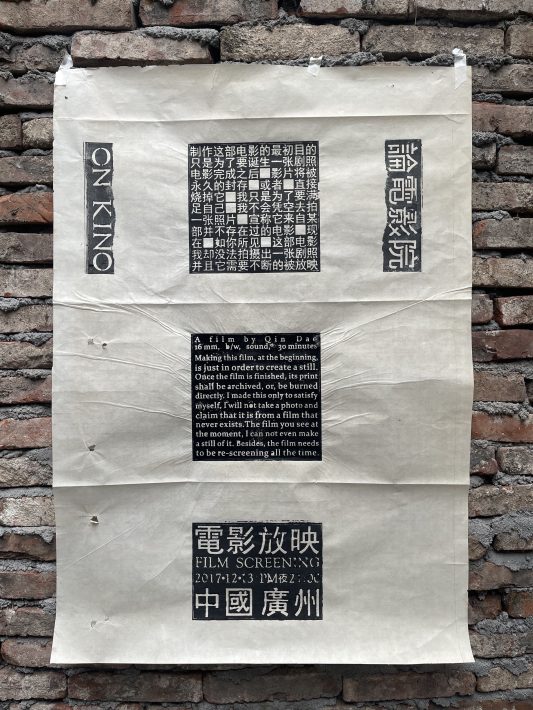 ON KINO
制作这部电影的最初目的
只是为了要诞生一张剧照
电影完成之后■影片将被
永久的封存■或者■直接
烧掉它■我只是为了要满
足自己■我不会凭空去拍
一张照片■宣称它来自某
部并不存在过的电影■现
在■如你所见■这部电影
我却没法拍摄出一张剧照
并且它需要不断的被放映
論電影院
A film by Qin Dae
16 mm, b/w, sound, 30 minutes
Making this film, at the beginning,
is just in order to create a still.
Once the film is finished, its print
shall be archived, or, be burned
directly. I made this only to satisfy
myself, I will not take a photo and
claim that it is from a film that
never exists.The film you see at
the moment, I can not even make
a still of it. Besides, the film needs
to be re-screening all the time.
電影放映
FILM SCREENING
2017•12•13 PM夜
中國 廣州